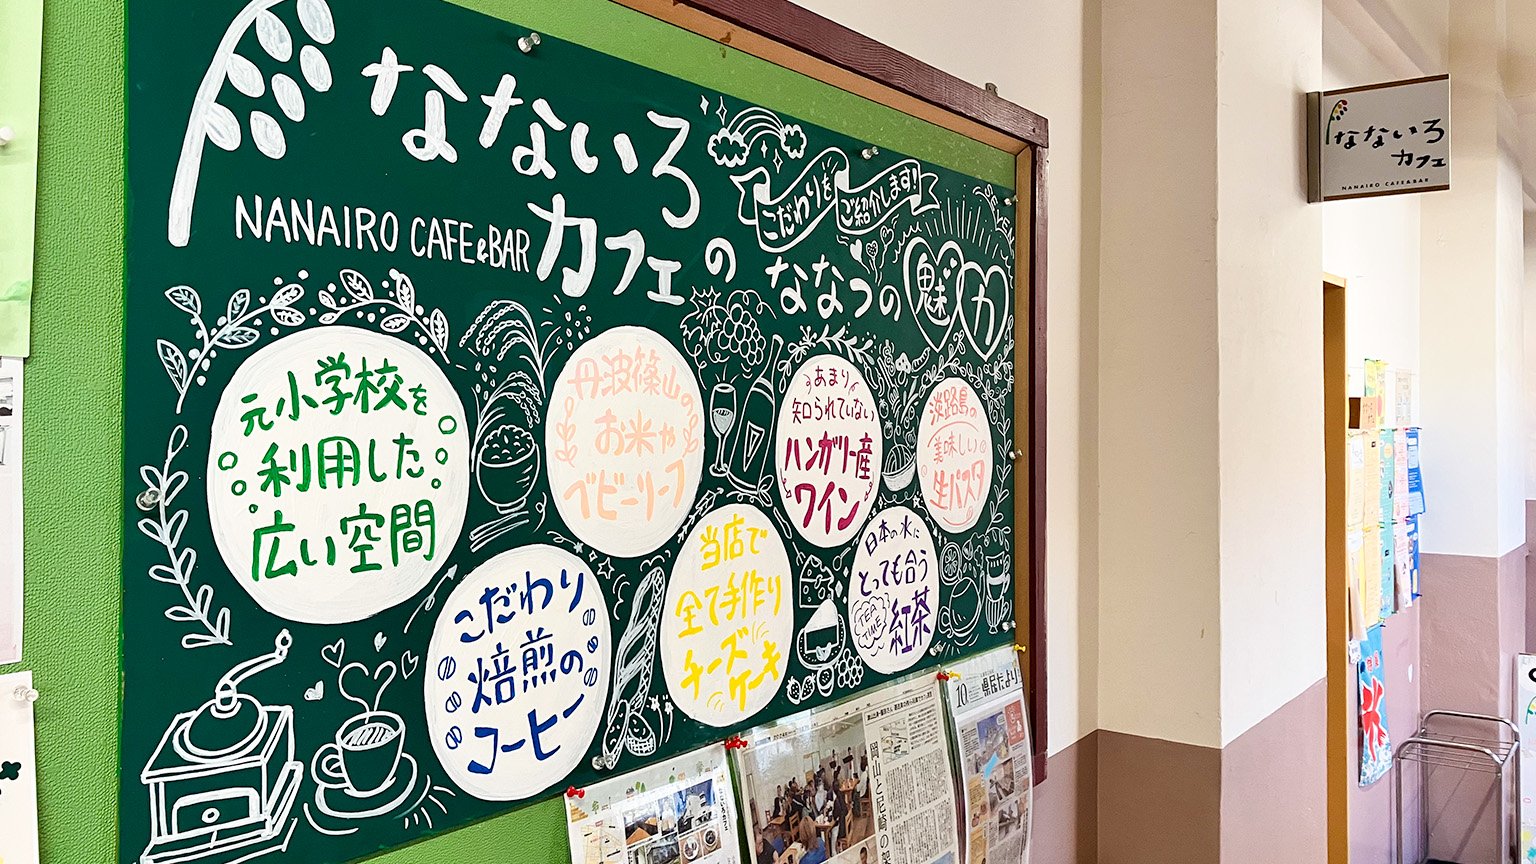 なないろ
カフェの
NANAIRO CAFE&BAR
こだわりを
ご紹介します!
ななつの魅力
元小学校を
利用した
広い空間
丹波篠山の
お米や
ベビーリーフ
あまり
知られていない
ハンガリー産
ワイン
淡路島の
美味しい
生パスタ
こだわり
焙煎の
コーヒー
当店で
全て手作り
チーズ
ケーキ
日本の水に
とっても合う
紅茶
TEA
TIME
なないろ
カフェ
NANAIRO CAFE&BAR
10
県民だより